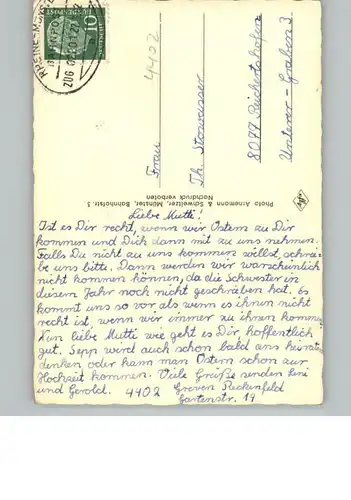 Liebe Mutti!
Ist es Dir recht, wenn wir Ostern zu Dir
kommen und Dich dann mit zu uns nehmen.
Falls Du nicht zu uns kommen willst, schrei-
be uns bitte. Dann werden wir warscheinlich
nicht kommen können, da die Schwester in
diesem Jahr noch nicht geschrieben hat. Es
kommt uns so vor als wenn es ihnen nicht
recht ist, wenn wir immer zu ihnen kommen.
Nun liebe Mutti wie geht es Dir hoffentlich
gut. Sepp wird auch schon bald ans heiraten
denken oder kann man Ostern schon zur
Hochzeit kommen. Viele Grüße senden
und Gerold. 4402 Greven Reckenfeld
Gartenstr. 19
Photo Arnemann & Schweitzer, Münster, Bahnhofstr. 3
Nachdruck verboten
4402
Frau
Th. Storwasser
8079
Unterer-Graben 3
10
DEUTSCHE BUNDESPOST
BAHNPOST
ZUG